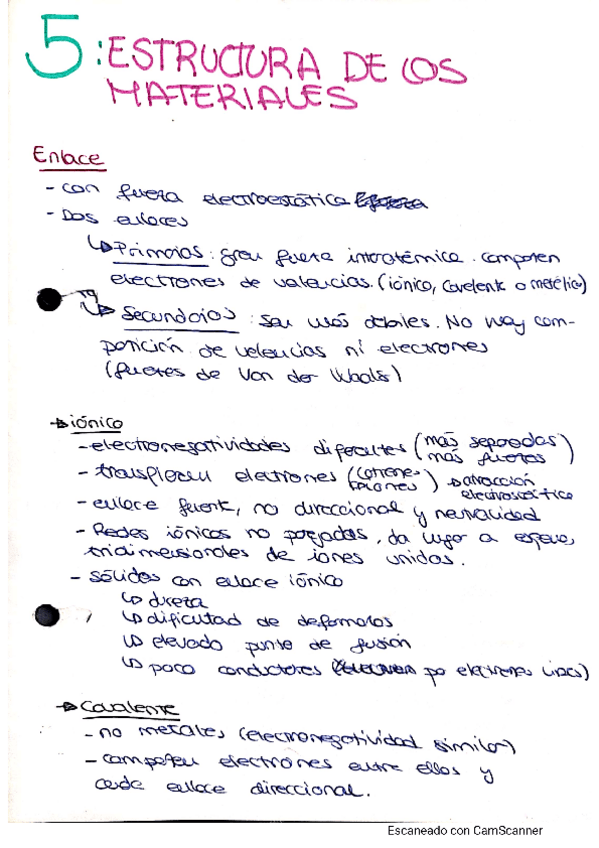 5: ESTRUCTURA DE LOS
MATERIALES
Enlace
- con fuerza electroestática
- Dos enlaces
↳ Primarios: gran fuerza interatómica. comparten
electrones de valencias. (iónico, covalente o metálico)
↳ Secundarios: son más débiles. No hay com-
partición de valencias ni electrones
(fuerzas de Van der Waals)
→ iónico
- electronegatividades diferentes (más separadas
más fuerzas)
- transfieren electrones (cationes
aniones) → atracción
electroestática
- enlace fuerte, no direccional y neutralidad
- Redes iónicas no , da lugar a
tridimensionales de iones unidos.
- sólidos con enlace iónico
↳ dureza
↳ dificultad de deformarlos
↳ elevado punto de fusión
↳ poco conductores electrones
→ Covalente
- no metales (electronegatividad similar)
- comparten electrones entre ellos y
cada enlace direccional.
Escaneado con CamScanner